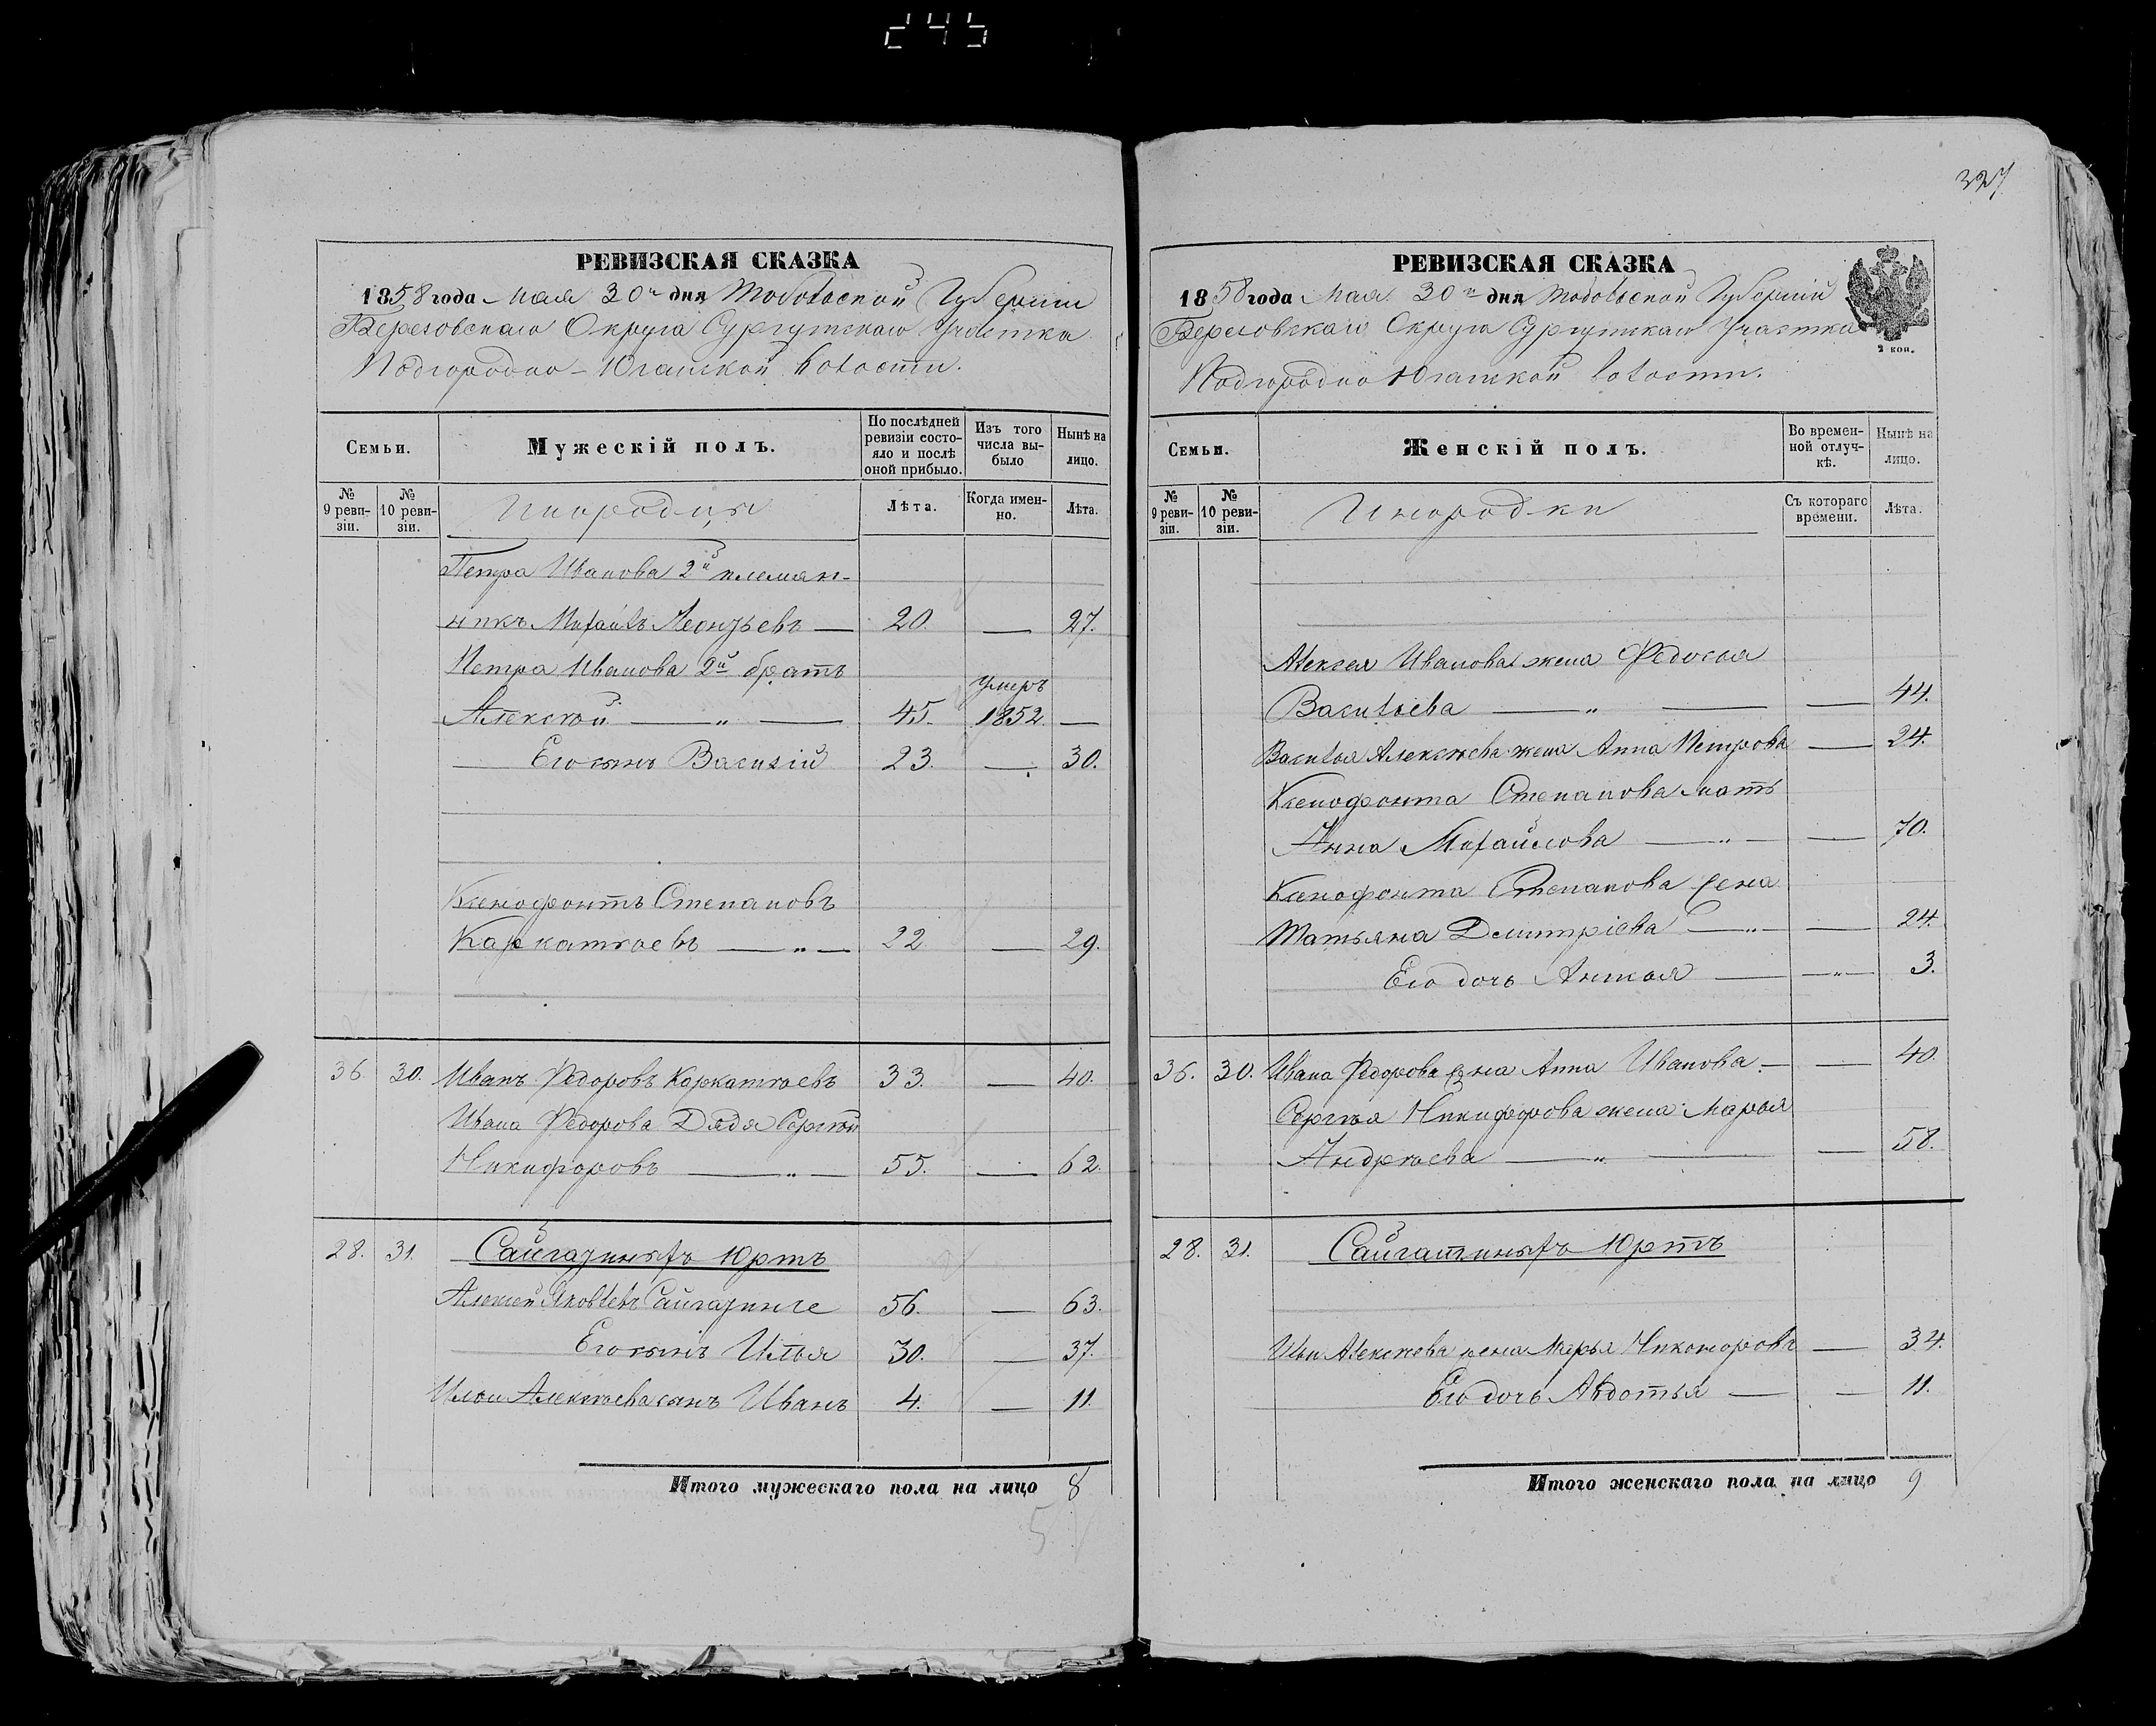 245
РЕВИЗСКАЯ СКАЗКА
1858 года Мая 30го дня Тобольской Губерніи
Березовскаго Округа Сургутскаго Участка
Подгородно-Юганской волости.
Семьи.
Мужескій полъ.
По послѣдней ревизіи состо-
яло и послѣ оной прибыло.
Изъ того числа вы-
было
Нынѣ на лицо.
№ 9 реви-
зіи.
№ 10 реви-
зіи.
Инородцы
Лѣта.
Когда имен-
но.
Лѣта.
Петра Иванова 2й племян-
никъ Михаилъ Леонтьевъ — 20. — 27.
Петра Иванова 2й братъ
умеръ
Алексѣй — „ — 45. 1852 —
Его сынъ Василій 23. — 30.
Ксенофонтъ Степановъ
Каркатѣевъ — „ — 22 — 29.
36. 30. Иванъ Федоровъ Каркатѣевъ 33. — 40.
Ивана Федорова Дядя Сергѣй
Никифоровъ — „ — 55. — 62.
28. 31. Сайгатиныхъ Юртъ
Алексѣй Яковлевъ 56. — 63.
Его сынъ Илья 30. — 37.
Ильи Алексѣева сынъ Иванъ 4. — 11.
Итого мужескаго пола на лицо 8
327
РЕВИЗСКАЯ СКАЗКА
1858 года Мая 30го дня Тобольской Губерніи
Березовскаго Округа Сургутскаго Участка
2 коп.
Подгородно Юганской волости.
Семьи.
Женскій полъ.
Во времен-
ной отлуч-
кѣ.
Нынѣ на лицо.
№ 9 реви-
зіи.
№ 10 реви-
зіи.
Инородки
Съ котораго времени.
Лѣта.
Алексея Иванова жена Федосья
Васильева — „ — — 44.
Василья Алексѣева жена Анна Петрова — 24.
Ксенофонта Степанова мать
Анна Михайлова — „ — — 70.
Ксенофонта Степанова жена
Татьяна Дмитріева — „ — — 24.
Его дочь — — „ — 3.
36. 30. Ивана Федорова жена Анна Иванова — — 40.
Сергѣя Никифорова жена Марья
Андреева — „ — — 58.
28. 31. Сайгатиныхъ Юртъ
Ильи Алексѣева жена Марья — 34.
Его дочь Авдотья — — 11.
Итого женскаго пола на лицо 9